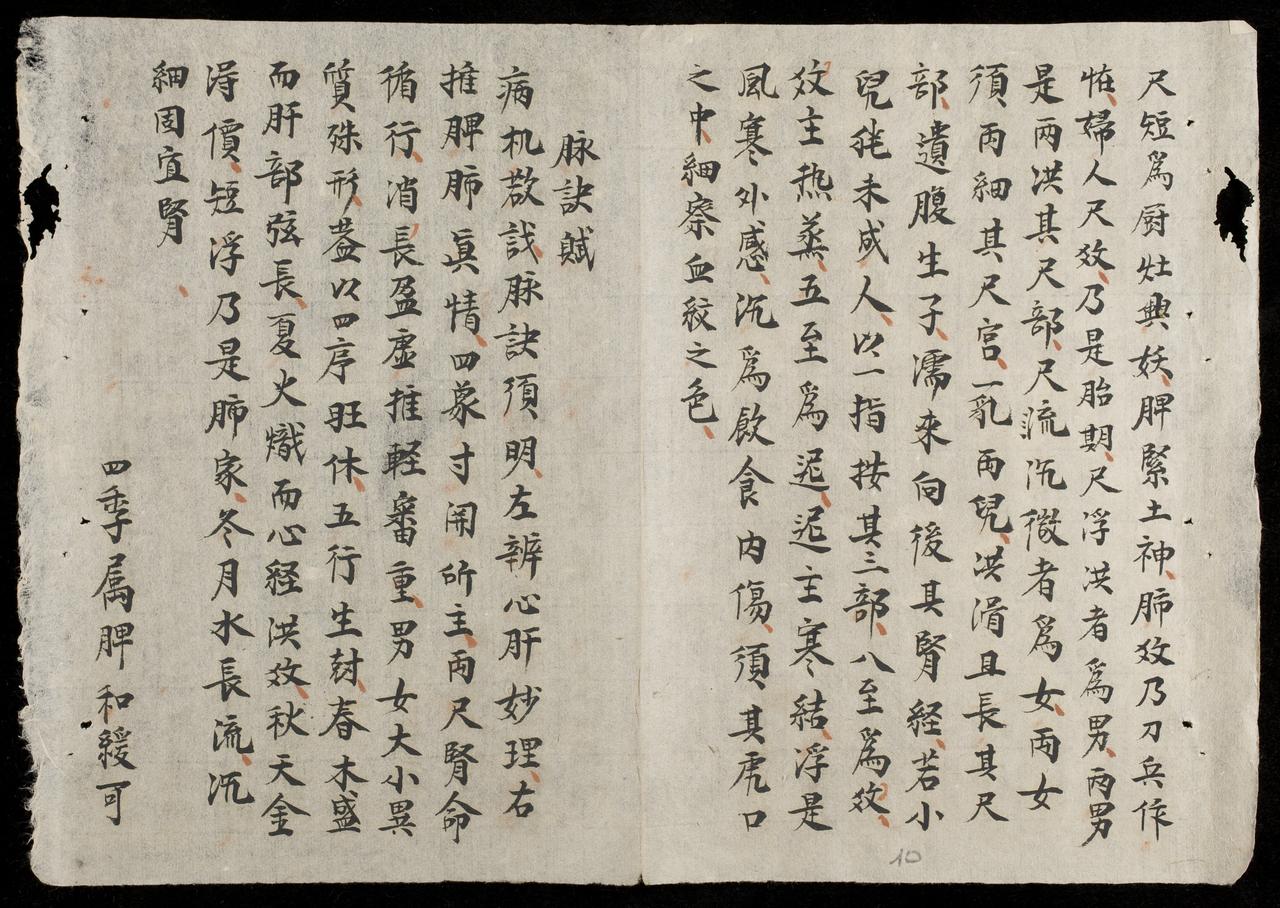 尺短爲厨灶興妖、脾緊土神、肺效乃刀兵作
怪、婦人尺效、乃是胎期、尺浮洪者爲男、兩男
是兩洪其尺部、尺㳅沉微者爲女、兩女
須両細其尺宫、一乳両兒、洪滑且長其尺
部、遺腹生子、濡來向後其腎経、若小
兒毷未成人、以一指按其三部、八至爲效、
效主热蒸、五至爲迟、迟主寒結、浮是
風寒外感、沉爲飲食内傷、須其虎口
之中、細察血紋之色、
脉訣賦
病机敖戝、脉訣須明、左辨心肝妙理、右
推脾肺眞情、四象寸関所主、両尺腎命
循行、消長盈虚、推軽審重、男女大小異
質殊形、盖以四序旺休、五行生尅、春木盛
而肝部弦長、夏火熾而心経洪效、秋天金
淂價、短浮乃是肺家、冬月水長流、沉
細固宜腎、
四季属脾和緩可
10